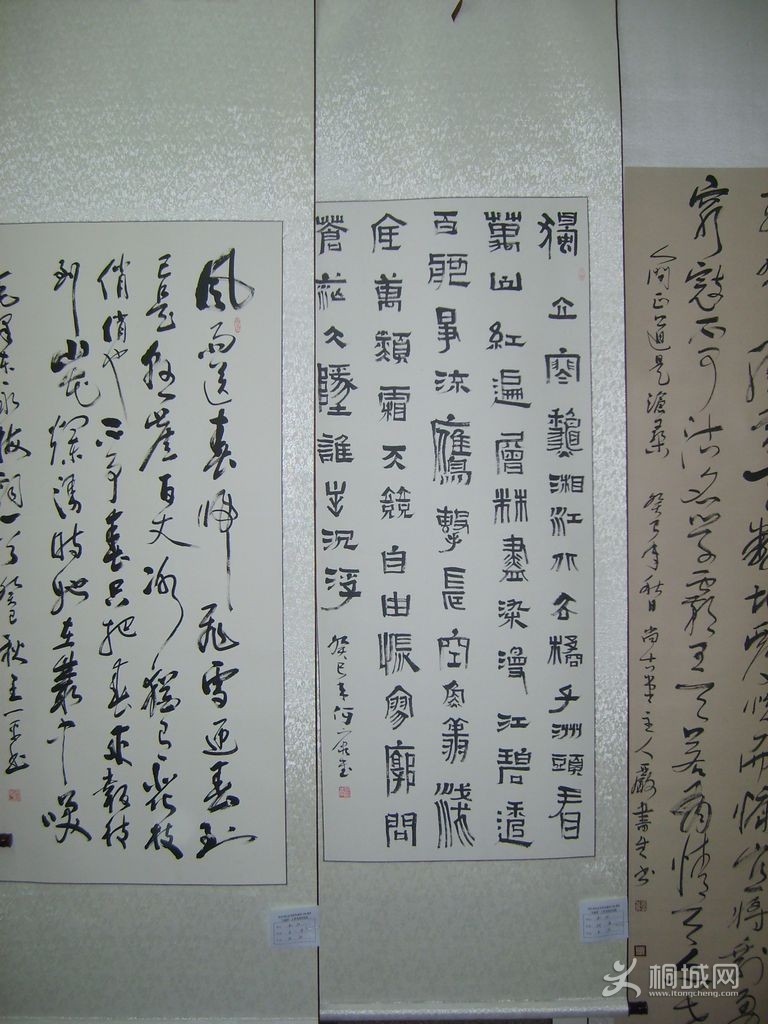 翻地覆慨而慷宜將剩勇
窮寇不可沽名學霸王天若有情天亦老
人間正道是滄桑 癸巳年秋日 尚古堂主人嚴書生書
獨立寒龝湘江北去橘子洲頭看
萬山紅遍層林盡染漫江碧透
百舸爭流鷹擊長空魚翔淺
底萬類霜天競自由悵寥廓問
蒼茫大地誰主沉浮
癸巳年何
風雨送春歸飛雪迎春到
已是懸崖百丈冰猶有花枝
俏俏也不爭春只把春來報待
到山花爛漫時她在叢中笑
毛澤東詠梅詞一首癸巳秋王一平書
桐城网
www.itongcheng.com